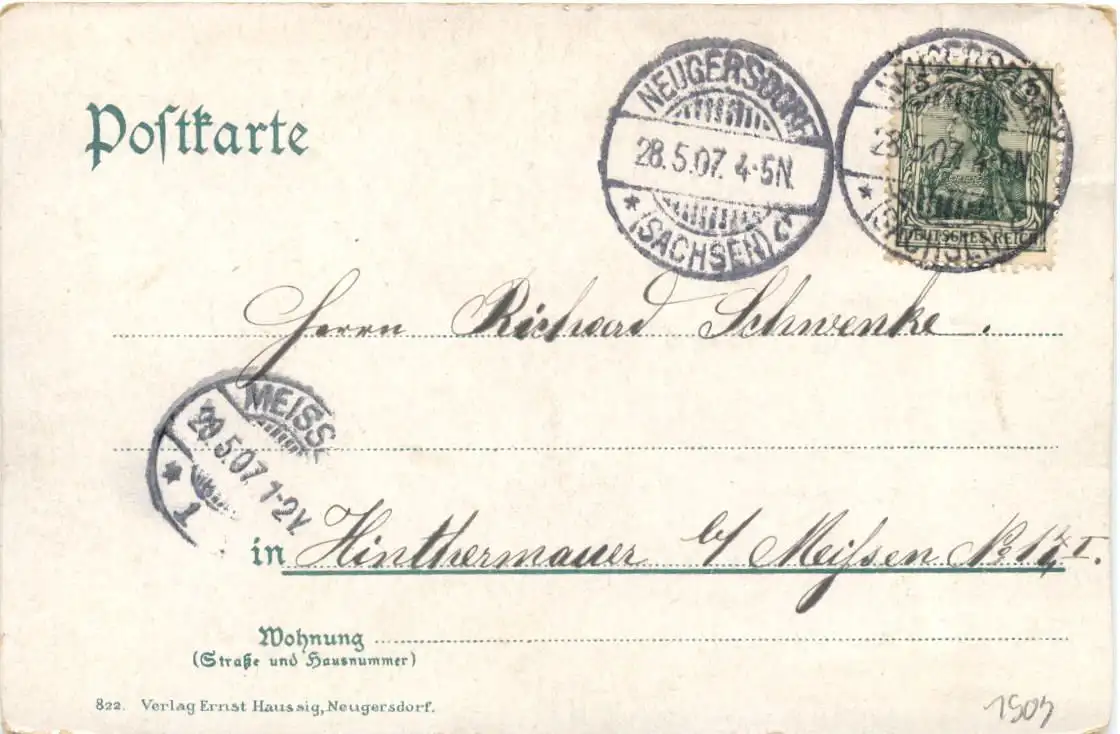 Poſtkarte
NEUGERSDORF
28.5.07. 4-5N.
* (SACHSEN) c
NEUGERSDORF
28.5.07. 4-5N.
* (SACHSEN)
5
DEUTSCHES REICH
Herrn Richard Schwenke.
MEISS
5.07. 1-2V.
* 1
in Hinthermauer b/ Meiſsen No
Wohnung
(Straße und Hausnummer)
822. Verlag Ernst Haussig, Neugersdorf.